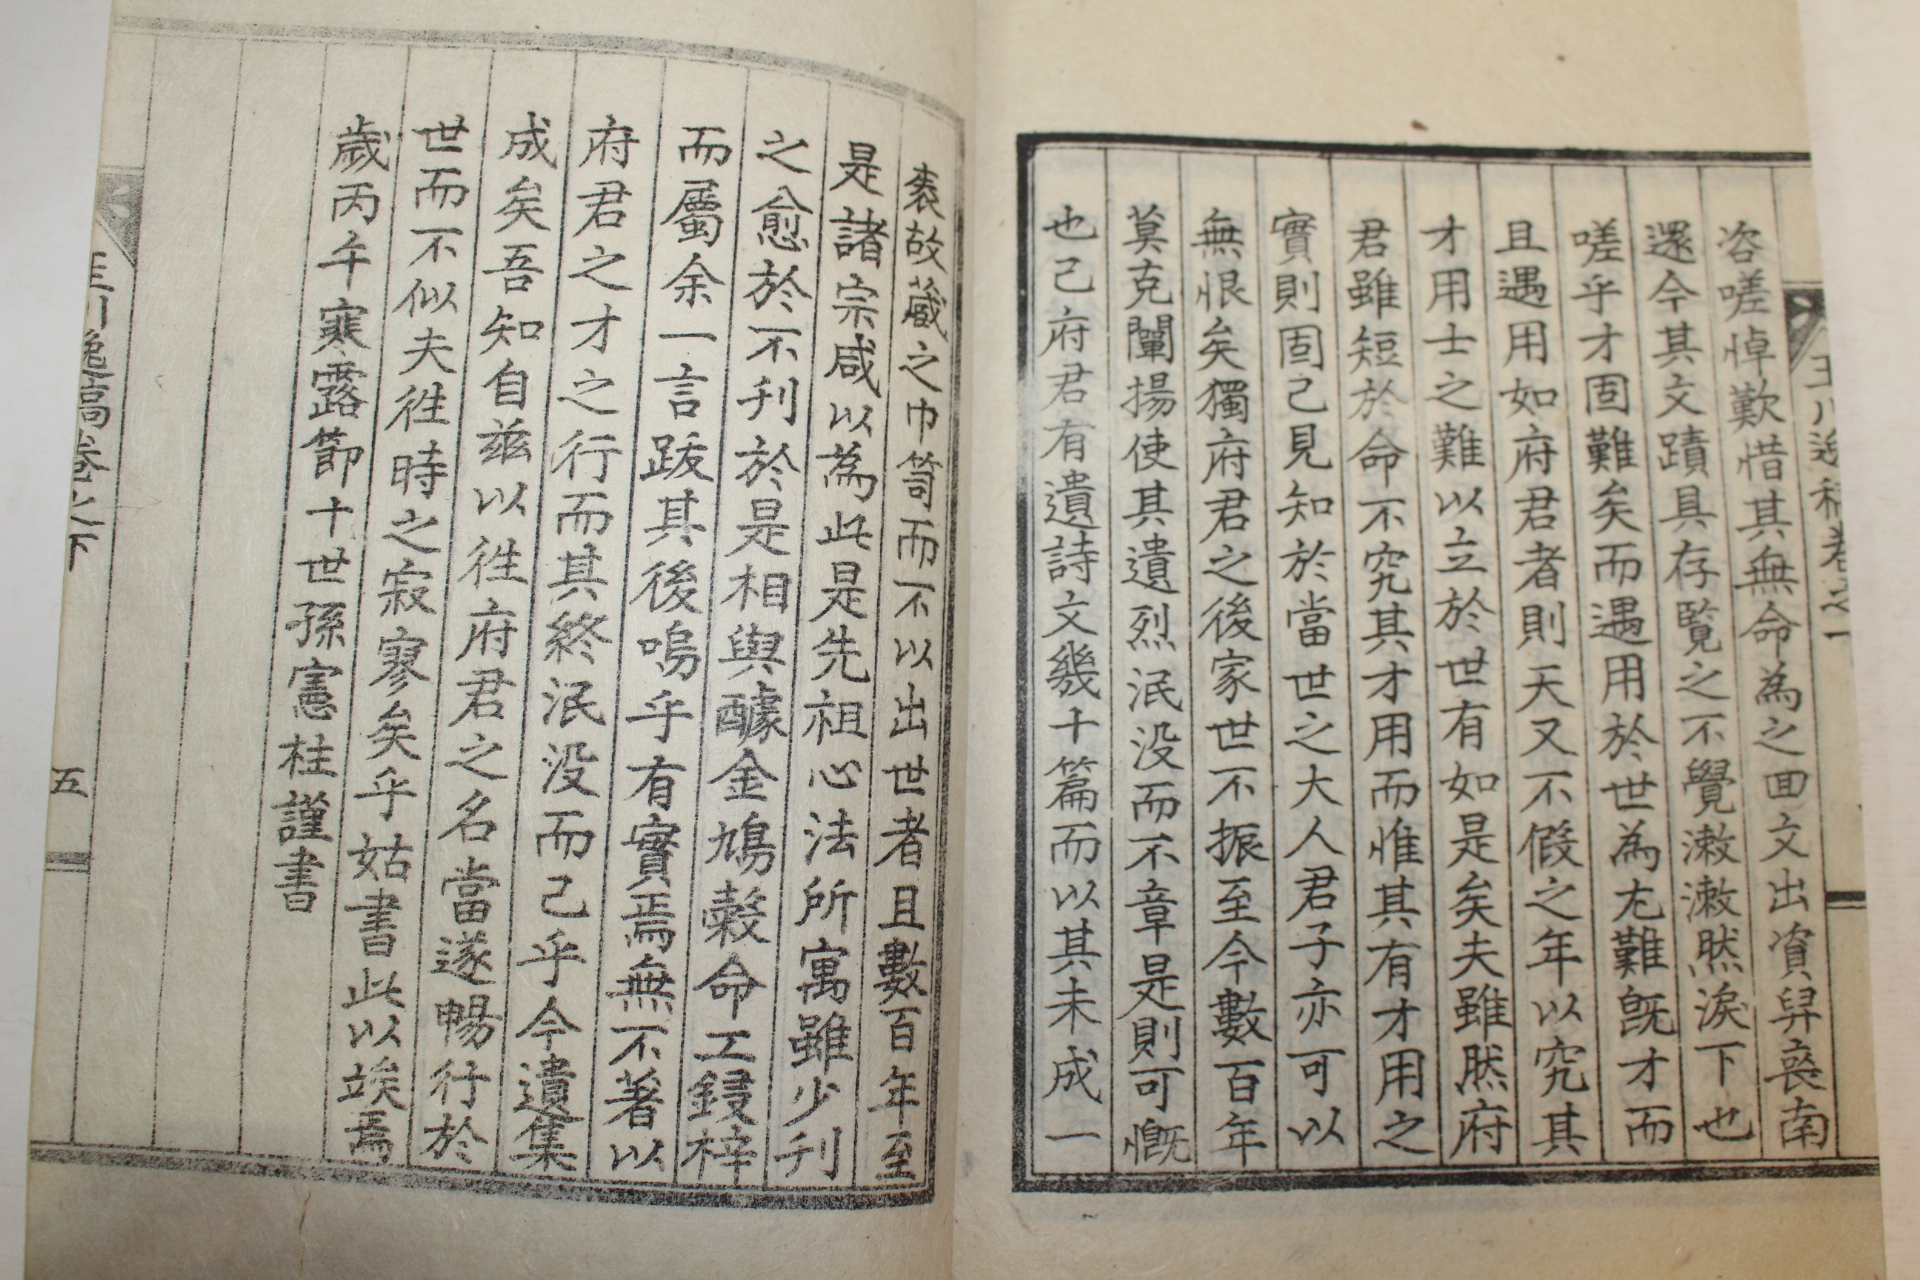 咨嗟悼歎惜其無命為之囬文出資舁喪南
還今其文蹟具存覧之不覺潄潄然淚下也
嗟乎才固難矣而遇用於世為尤難既才而
且遇用如府君者則天又不假之年以究其
才用士之難以立於世有如是矣夫雖然府
君雖短於命不究其才用而惟其有才用之
實則固己見知於當世之大人君子亦可以
無恨矣獨府君之後家世不振至今數百年
莫克闡揚使其遺烈泯没而不章是則可慨
也己府君有遺詩文幾十篇而以其未成一
袠故蔵之巾笥而不以出世者且數百年至
是諸宗咸以為此是先祖心法所寓雖少刋
之愈於不刋於是相與醵金鳩穀命工鋟梓
而屬余一言跋其後嗚乎有實焉無不著以
府君之才之行而其終泯没而己乎今遺集
成矣吾知自玆以徃府君之名當遂暢行於
世而不似夫徃時之寂寥矣乎姑書此以竢焉
歲丙午寒露節十世孫憲柱謹書
川逸稿卷之下
五